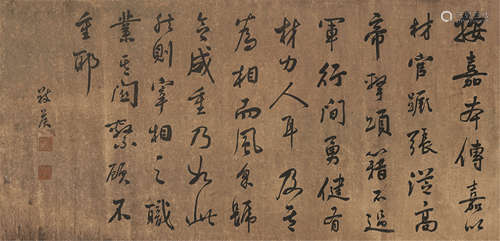 按嘉本傳嘉以
材官蹶張從高
帝擊項籍不過
軍行間勇健有
材力人耳及其
為相而風采號
令威重乃如此
然則宰相之職
業其關繫顧不
重耶